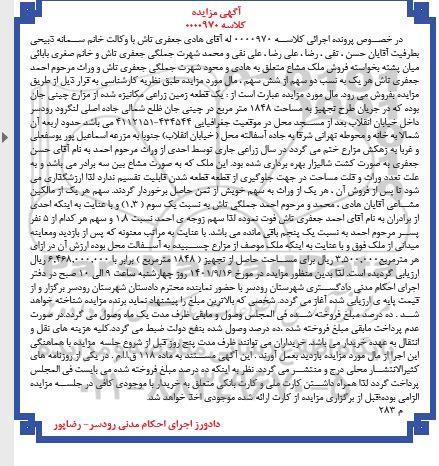 آگهی مزایده
کلاسه ۰۰۰۰۹۷۰
در خصوص پرونده اجرائی کلاسه ۰۰۰۰۹۷۰ له آقای هادی جعفری تاش با وکالت خانم سمانه ذبیحی
بطرفیت آقایان حسن ، تقی ، رضا ، علی رضا ، علی نقی و محمد شهرت جملگی جعفری تاش و خانم صغری بابائی
میان پشته بخواسته فروش ملک مشاع متعلق به هادی و محمود شهرت جملگی جعفری تاش و وراث مرحوم احمد
جعفری تاش هر یک به نسب دو سهم از شش سهم . مال مورد مزایده طبق نظریه کارشناسی به قرار ذیل از طریق
مزایده بفروش می رود. مال مورد مزایده عبارت است از : یک قطعه زمین زراعی مکانیزه شده از مزارع چینی جان
بوده که در جریان طرح تجهیز به مساحت ۱۸۴۸ متر مربع در چینی جان ظلع شمالی جاده اصلی لنگرود رودسر
داخل خیابان انقلاب بعد از مسجد محل در موقعیت جغرافیایی ۴۴۴۵۴۴-۴۱۱۲۱۵۱ می باشد حدود اربعه آن
شمالا به خانه و محوطه تهرانی شرقا به جاده آسفالته محل ( خیابان انقلاب) جنوبا به مزرعه اسماعیل پور یوسفعلی
و غربا به زهکش مزارع ختم می گردد در سال زراعی جاری توسط احدی از وراث مرحوم احمد به نام آقای حسن
جعفری به صورت کشت شالیزار بهره برداری شده بود. این ملک که به صورت مشاع بین سه برادر می باشد و به
علت تعدد وراث و قلت مساحت در جهت جلوگیری از قطعه قطعه شدن قابلیت تقسیم ندارد لذا ارزشگذاری می
شود تا پس از فروش آن ، هر یک از وراث به سهم خویش از ثمن حاصل برخوردار گردند. سهم هر یک از مالکین
مشاعی آقایان هادی ، محمد و مرحوم احمد جملگی تاش به نسبت یک سوم ( ۱,۳) و با عنایت به اینکه احدی
از برادران به نام آقای احمد جعفری تاش فوت نموده لذا سهم زوجه ی احمد نسبت ۱,۸ و سهم هر کدام از ۵ نفر
پسر مرحوم احمد به نسبت یک پنجم باقی مانده می باشد. با عنایت به مراتب معنونه که پس از بازدید ومعاینه
میدانی از ملک فوق و با عنایت به اینکه ملک موصف از مزارع چسبیده به آسفالت محل بوده ارزش آن در ازای
هر مترمربع ۳,۵۰۰,۰۰۰ ریال برای مساحت حاصل از تجهیز ( ۱۸۴۸ مترمربع ) برابر با ۶,۴۶۸,۰۰۰,۰۰۰ ریال
ارزیابی گردیده است. لذا بدین منظور مزایده در مورخ ۱۴۰۱/۹/۱۶ روز چهارشنبه ساعت ۹ الی ۱۰ صبح در دفتر
اجرای احکام مدنی دادگستری شهرستان رودسر با حضور نماینده محترم دادستان شهرستان رودسر برگزار و از
قیمت پایه ی ارزیابی شده آغاز می گردد. شخصی که بالاترین مبلغ را پیشنهاد نماید برنده مزایده شناخته خواهد
شد . ده درصد مبلغ فروخته شده فی المجلس وصول و مابقی ظرف مدت یک ماه وصول می گردد.در صورت
عدم پرداخت مابقی مبلغ فروخته شده ،ده درصد وصول شده بنفع دولت ضبط می گردد.کلیه هزینه های نقل و
انتقال به عهده خریدار می باشد. خریداران می توانند ظرف مدت پنج روز قبل از شروع جلسه مزایده با هماهنگی
این اجرا از مال مورد مزایده بازدید بعمل آورند . این آگهی مستند به ماده ۱۱۸ ق.ا.م . در یکی از روزنامه های
کثیرالانتشار محلی درج و منتشر می گردد. نظر به اینکه ده درصد مبلغ فروخته شده می بایست فی المجلس
پرداخت گردد لذا همراه داشتن کارت ملی و کارت بانکی متعلق به خریدار با موجودی کافی در جلسه مزایده
الزامی بوده،قبل از برگزاری مزایده از کارت ارائه شده موجودی اخذ خواهد شد.
م ۲۸۳
دادورز اجرای احکام مدنی رودسر- رضاپور